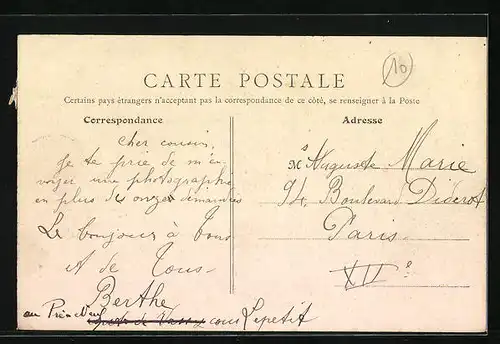 10
CARTE POSTALE
Certains pays étrangers n'acceptant pas la correspondance de ce côté, se renseigner à la Poste
Correspondance
Cher cousin,
Je te prie de m'en
voyer une photographie
en plus de onze demandées
Le bonjour à tous
A de Tous
Berthe
au Pré
cous Lepetit
Adresse
Ms Auguste Marie
94, Boulevard Diderot
Paris
XIIe